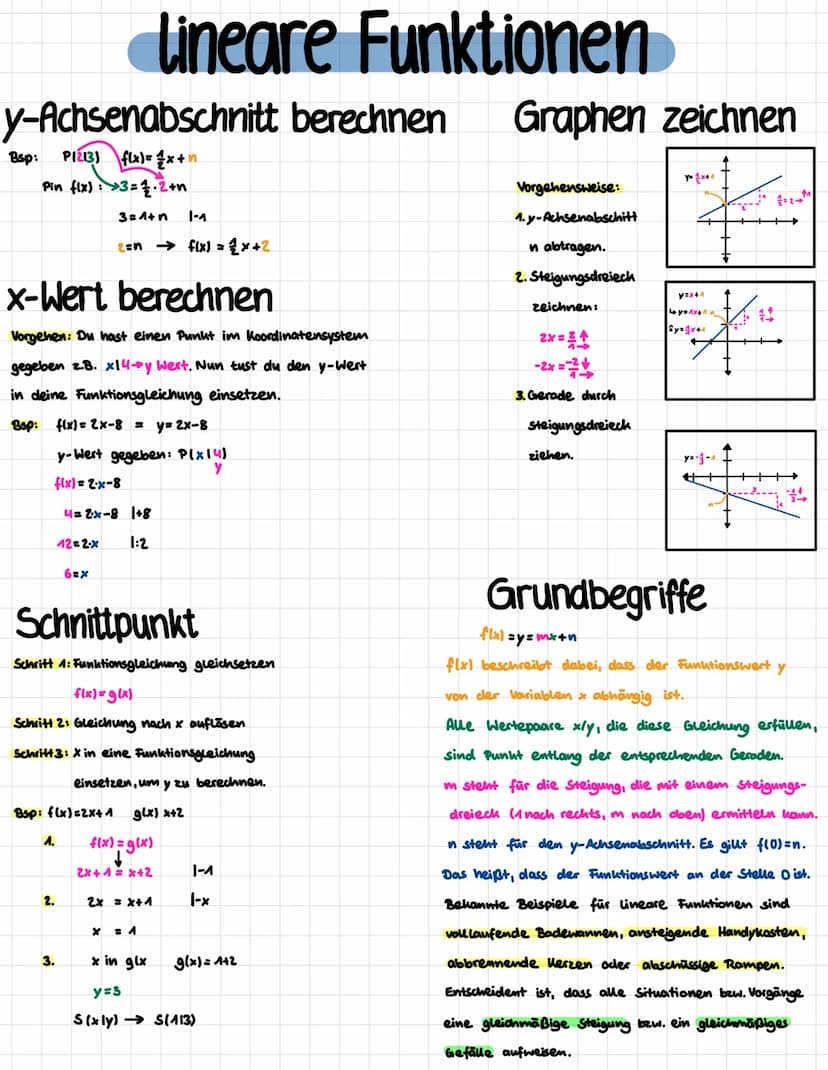 lineare Funktionen
y-Achsenabschnitt berechnen
Bsp: P(2|3) f(x)= 1/2 x + n
P in f(x): → 3 = 1/2 · 2 + n
3 = 1 + n |-1
2 = n → f(x) = 1/2 x + 2
x-Wert berechnen
Vorgehen: Du hast einen Punkt im Koordinatensystem
gegeben z.B. x|4 → y Wert. Nun tust du den y-Wert
in deine Funktionsgleichung einsetzen.
Bsp: f(x) = 2x-8 = y = 2x-8
y-Wert gegeben: P(x|4)
y
f(x) = 2·x-8
4 = 2·x-8 |+8
12 = 2·x |:2
6 = x
Schnittpunkt
Schritt 1: Funktionsgleichung gleichsetzen
f(x) = g(x)
Schritt 2: Gleichung nach x auflösen
Schritt 3: x in eine Funktionsgleichung
einsetzen, um y zu berechnen.
Bsp: f(x) = 2x+1 g(x) x+2
1. f(x) = g(x)
↓
2x+1 = x+2 |-1
2. 2x = x+1 |-x
x = 1
3. x in g(x g(x) = 1+2
y = 3
S(x|y) → S(1|3)
Graphen zeichnen
Vorgehensweise:
1. y-Achsenabschitt
n abtragen.
2. Steigungsdreieck
zeichnen:
2x = 2/1 ↑→
-2x = -2/1 ↓→
3. Gerade durch
Steigungsdreieck
ziehen.
y=x+1
↳ y=1x+1
n
Grundbegriffe
f(x) = y = mx+n
f(x) beschreibt dabei, dass der Funktionswert y
von der Variablen x abhängig ist.
Alle Wertepaare x/y, die diese Gleichung erfüllen,
sind Punkt entlang der entsprechenden Geraden.
m steht für die Steigung, die mit einem Steigungs-
dreieck (1 nach rechts, m nach oben) ermitteln kann.
n steht für den y-Achsenabschnitt. Es gilt f(0)=n.
Das heißt, dass der Funktionswert an der Stelle 0 ist.
Bekannte Beispiele für lineare Funktionen sind
volllaufende Badewannen, ansteigende Handykosten,
abbrennende Kerzen oder abschüssige Rampen.
Entscheident ist, dass alle Situationen bzw. Vorgänge
eine gleichmäßige Steigung bzw. ein gleichmäßiges
Gefälle aufweisen.